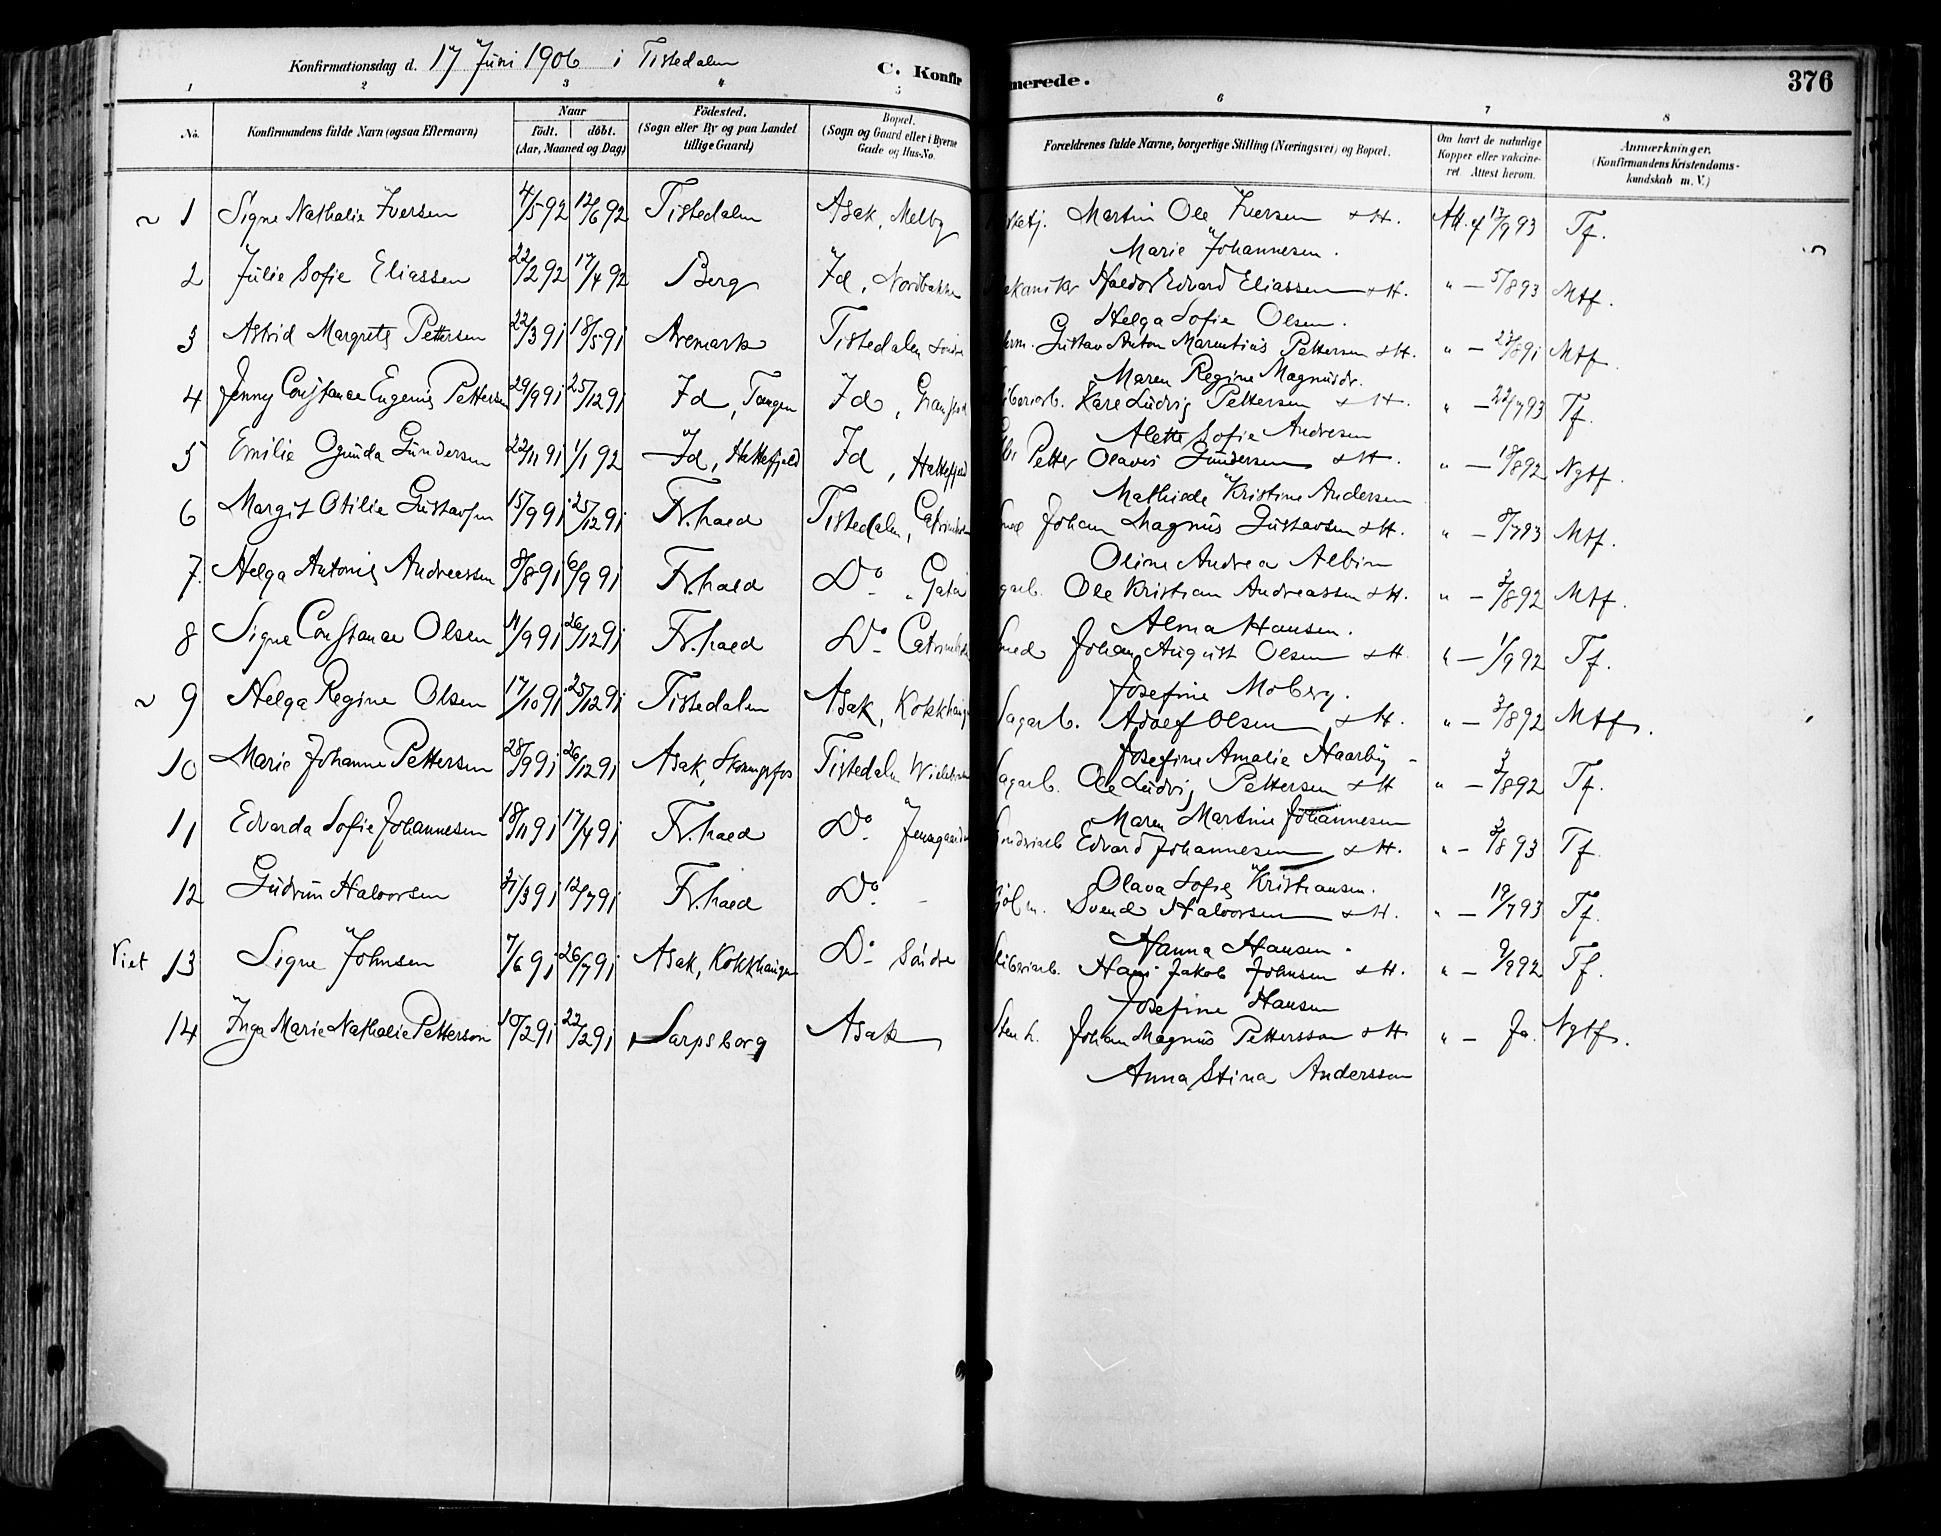 Konfirmationsdag d. 17 Juni 1906 i Tistedalen C. Konfirmerede. 376
1 2 3 4 5 6 7 8
No. Konfirmandens fulde Navn (ogsaa Efternavn) Naar født. døbt. (Aar, Maaned og Dag) Fødested. (Sogn eller By og paa Landet tillige Gaard) Bopæl. (Sogn og Gaard eller i Byerne Gade og Hus-No. Forældrenes fulde Navne, borgerlige Stilling (Næringsvei) og Bopæl. Om havt de naturlige Kopper eller vakcineret Attest herom. Anmærkninger. (Konfirmandens Kristendomskundskab m. V.)
~ 1 Signe Nathalie Iversen 4/5 92 12/6 92 Tistedalen Asak, Melby Martin Ole Iversen & H. Att. af 13/9 93 Tf.
Marie Johannesen.
2 Julie Sofie Eliassen 22/2 92 17/4 92 Berg Id, Nordbakke Haldor Edvard Eliassen & H. " — 5/8 93 Mtf.
Helga Sofie Olsen.
3 Astrid Margrete Pettersen 22/3 91 18/5 91 Aremark Tistedalen Søndre Gustav Anton Marentius Pettersen & H. " — 23/8 91 Mtf.
Maren Regine Magnusdr.
4 Jenny Constance Eugenie Pettersen 29/9 91 25/12 91 Id, Tangen Id, Karl Ludvig Pettersen & H. " — 22/7 93 Tf.
Alette Sofie Andresen
5 Emilie Ogunda Gundersen 22/11 91 1/1 92 Id, Hattefjeld Id, Hattefjeld Petter Olaves Gundersen & H. " — 18/8 92 Ngtf.
Mathilde Kristine Andersen
6 Margit Otilie Gustavsen 15/9 91 25/12 91 Fr.hald Tistedalen, Johan Magnus Gustavsen & H. " — 8/7 93 Mtf.
Oline Andrea Albin
7. Helga Antonie Andreassen 8/8 91 6/9 91 Fr.hald Do. Ole Kristian Andreassen & H. " — 3/8 92 Mtf.
Alma Hansen.
8 Signe Constance Olsen 11/9 91 26/12 91 Fr.hald Do. Johan August Olsen & H. " — 1/9 92 Tf.
Josefine Moberg.
~ 9 Helga Regine Olsen 17/10 91 25/12 91 Tistedalen Asak, Kokkhaugen Sagarb. Adolf Olsen & H. " — 3/8 92 Mtf.
Josefine Amalie Haarby
10 Marie Johanne Pettersen 28/9 91 26/12 91 Asak, Skoningsfos Tistedalen Sagarb. Ole Ludvig Pettersen & H " — 3/8 92 Tf.
Maren Martine Johannesen
11 Edvarda Sofie Johannesen 18/11 91 17/4 91 Fr.hald Do. Edvard Johannesen & H. " — 3/8 93 Tf.
Olava Sofie Kristiansen.
12 Gudrun Halvorsen 31/3 91 12/7 91 Fr.hald Do. Svend Halvorsen & H. " — 19/7 93 Tf.
Hanna Hansen.
Viet 13 Signe Johnsen 7/6 91 26/7 91 Asak, Kokkhaugen Do. Søndre Hans Jakob Johnsen & H. " — 9/9 92 Tf.
Josefine Hansen
14 Inga Marie Nathalie Petterson 10/2 91 22/2 91 Sarpsborg Asak Stenh. Johan Magnus Pettersson & H " — Ja. Ngtf.
Anna Stina Andersson